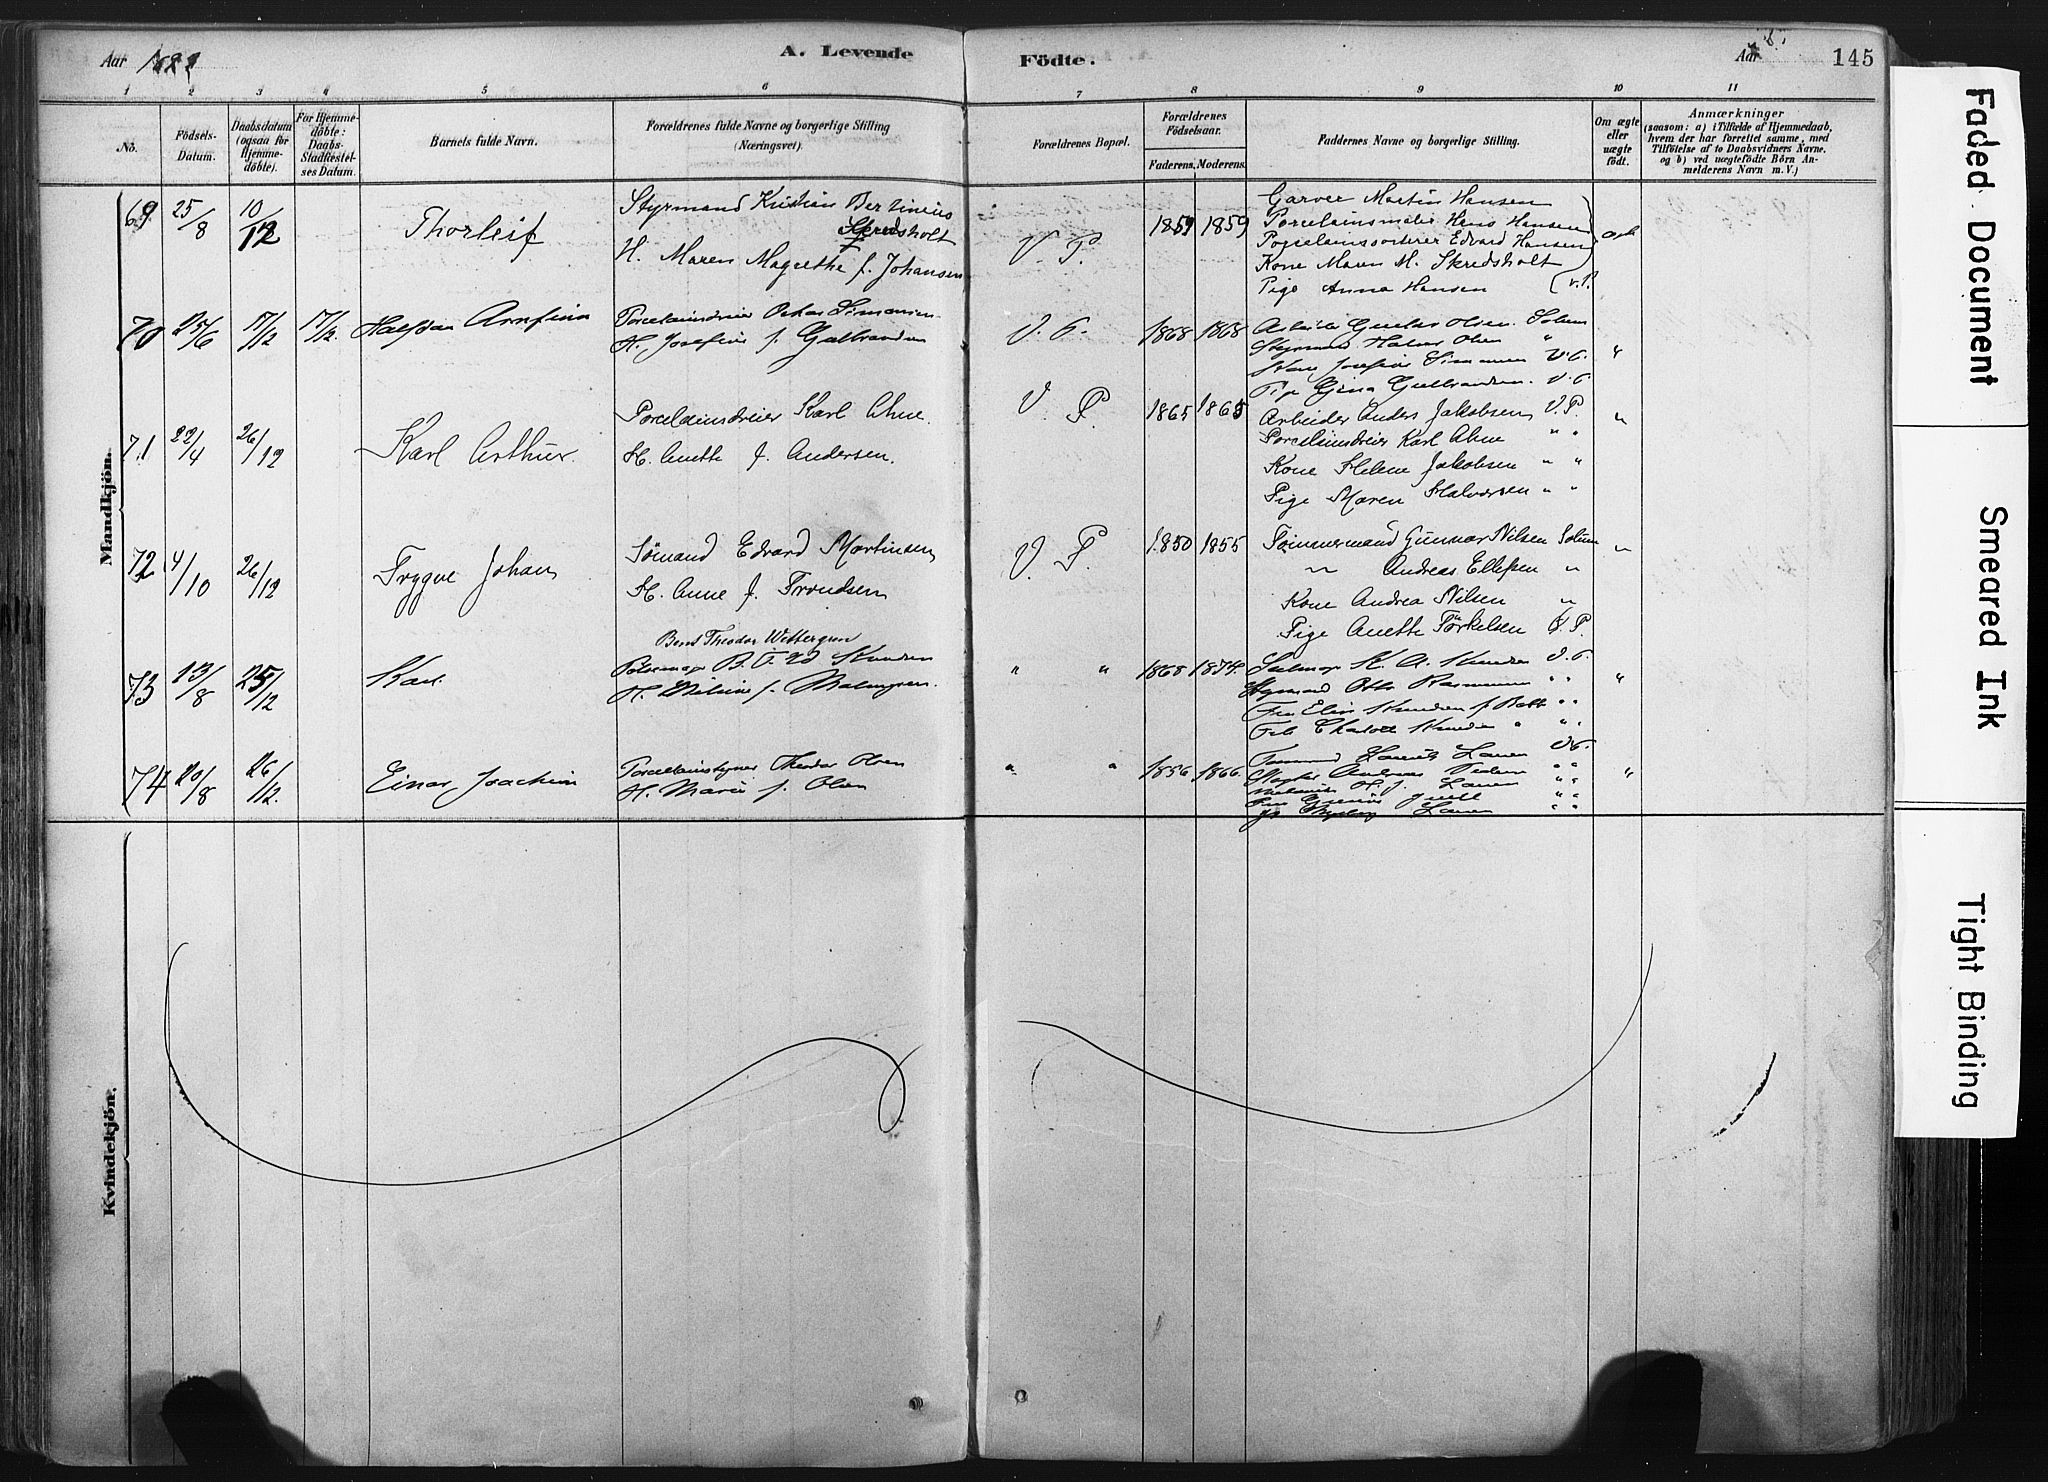 Aar
A. Levende
Födte.
Aar
145
1 2 3 4 5 6 7 8 9 10 11
No.
Födsels-
Datum.
Daabsdatum
(ogsaa for
Hjemme-
døbte).
For Hjemme-
döbte:
Daabs-
Stadfæstel-
ses Datum.
Barnets fulde Navn.
Forældrenes fulde Navne og borgerlige Stilling
(Næringsvei).
Forældrenes Bopæl.
Forældrenes
Födselsaar.
Faderens. Moderens.
Faddernes Navne og borgerlige Stilling.
Om ægte
eller
uægte
födt.
Anmærkninger
(saasom: a) i Tilfælde af Hjemmedaab,
hvem der har forrettet samme, med
Tilföielse af to Daabsvidners Navne,
og b) ved uægtefödte Börn An-
melderens Navn m. V.)
Mandkjön.
69 25/8 10/12 Thorleif
Styrmand Kristian Bertinius
Skredsholt
H. Maren Magrethe f. Johansen
V. P. 1859 1859
Garver Martin Hansen
Porcelainsmaler Hans Hansen
Porcelainssorterer Edvard Hansen
Kone Maren M. Skredsholt
Pige Anna Hansen
70 17/12 17/12 Halfdan Arnfinn
Porcelainsdreier Oskar Simonsen
H. Josefine f. Gulbrandsen
V. P. 1868 1868
Arbeider Gustav Olsen Solum
Styrmand Halvor Olsen "
Kone Josefine Simonsen V. P. "
Pige Gina Gulbrandsen V. P.
71 22/4 26/12 Karl Arthur
Porcelainsdreier Karl
H. Anette f. Andersen.
V. P. 1865 1865
Arbeider Anders Jakobsen V. P. "
Porcelainsdreier Karl " "
Kone Helene Jakobsen " "
Pige Maren Halvorsen " "
72 4/10 26/12 Trygve Johan
Sömand Edvard Martinsen
H. Anne f. Trondsen
V. P. 1850 1855
Tömmermand Gunnar Nilsen Solum "
" Andreas Ellefsen "
Kone Andrea Nilsen "
Pige Anette Törkelsen V. P.
73 13/8 25/12 Karl
Bernt Theodor Wettergren
B. T. W Knudsen
H. f. Malmgren.
" " 1868 1874.
K. A. Knudsen V. P.
Styrmand Otto Rasmussen " " "
Fru Elise Knudsen f. " "
Frk Charlotte Knudsen " " "
74 20/8 26/12. Einar Joachim
Theodor Olsen
H. Marie f. Olsen
" " 1856 1866.
Lauritz Larsen V. P.
Andreas " " "
H. J. Larsen " "
" "
Larsen " "
Kvindekjön.
Faded Document
Smeared Ink
Tight Binding